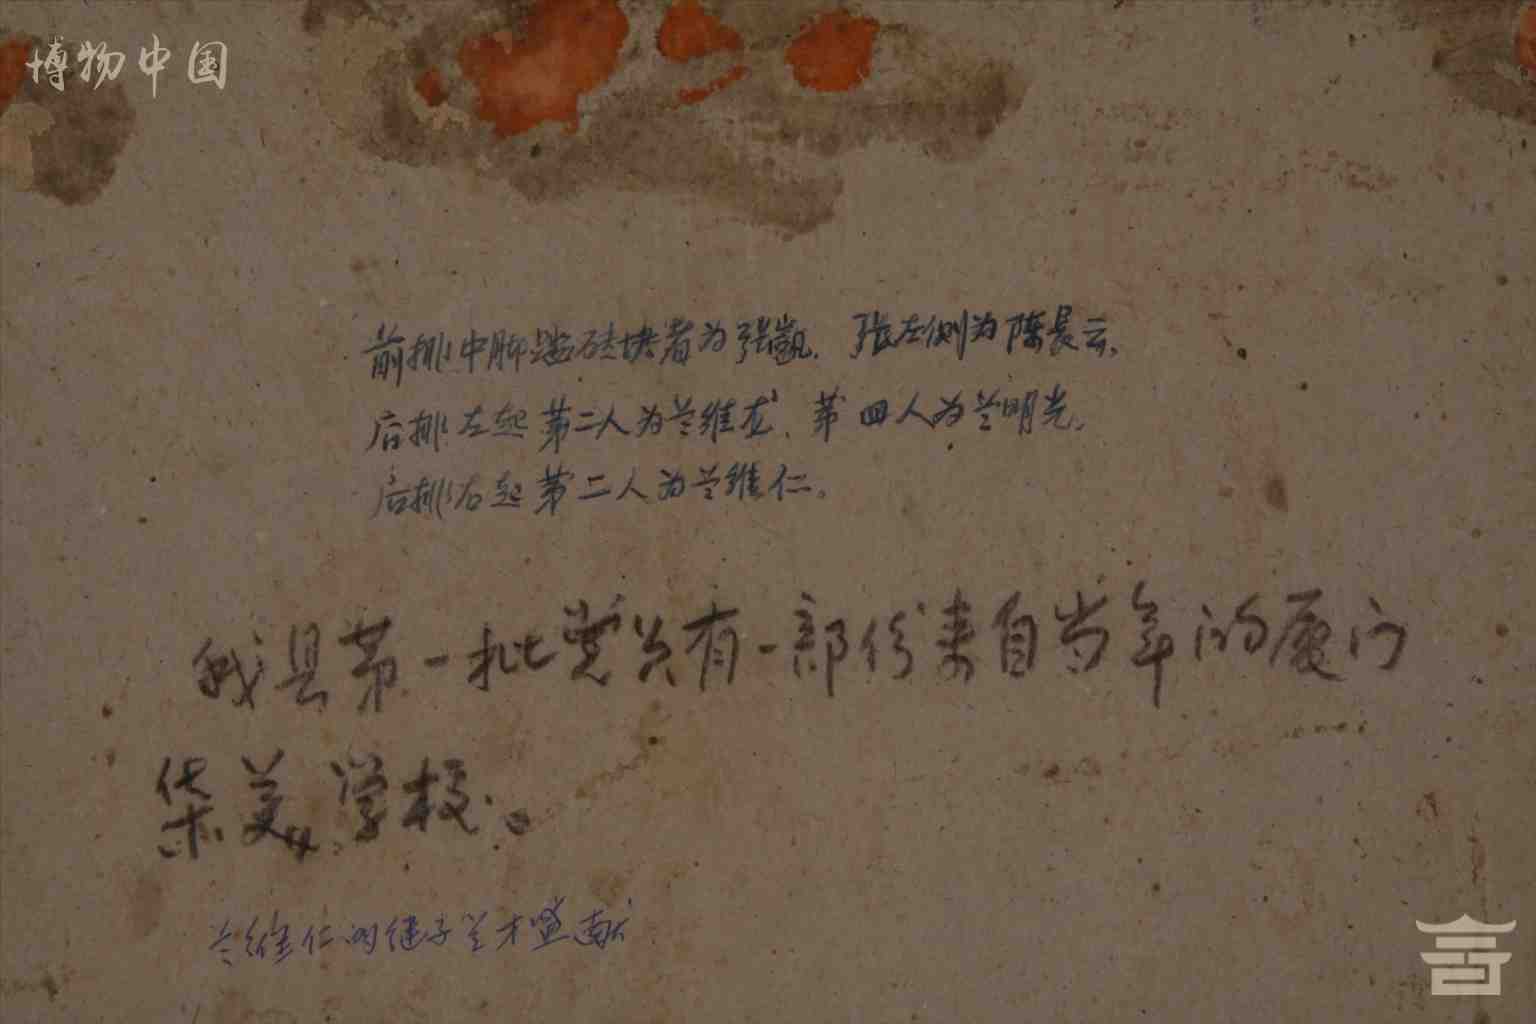 博物中国
前排中脚踏砖块者为张觊，张左侧为陈晨云，
后排左起第二人为兰维龙、第四人为兰明光，
后排右起第二人为兰维仁。
我县第一批党员有一部份来自当年的厦门
集美学校。
兰维仁的继子兰才盛献